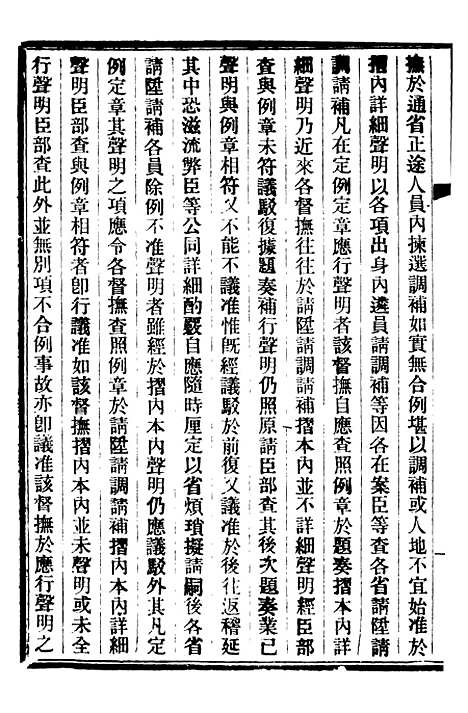 撫於通省正途人員內揀選調補如實無合例堪以調補或人地不宜始准於
摺內詳細聲明以各項出身內遴員請調補等因各在案臣等查各省請陞請
調請補凡在定例定章應行聲明者該督撫自應查照例章於題奏摺本內詳
細聲明乃近來各督撫往往於請陞請調請補摺本內並不詳細聲明經臣部
查與例章未符議駁復據題奏補行聲明仍照原請臣部查其後次題奏業已
聲明與例章相符又不能不議准惟旣經議駁於前復又議准於後往返稽延
其中恐滋流弊臣等公同詳細酌覈自應隨時厘定以省煩瑣擬請嗣後各省
請陞請補各員除例不准聲明者雖經於摺內本內聲明仍應議駁外其凡定
例定章其聲明之項應令各督撫查照例章於請陞請調請補摺內本內詳細
聲明臣部查與例章相符者卽行議准如該督撫摺內本內並未聲明或未全
行聲明臣部查此外並無別項不合例事故亦卽議准該督撫於應行聲明之